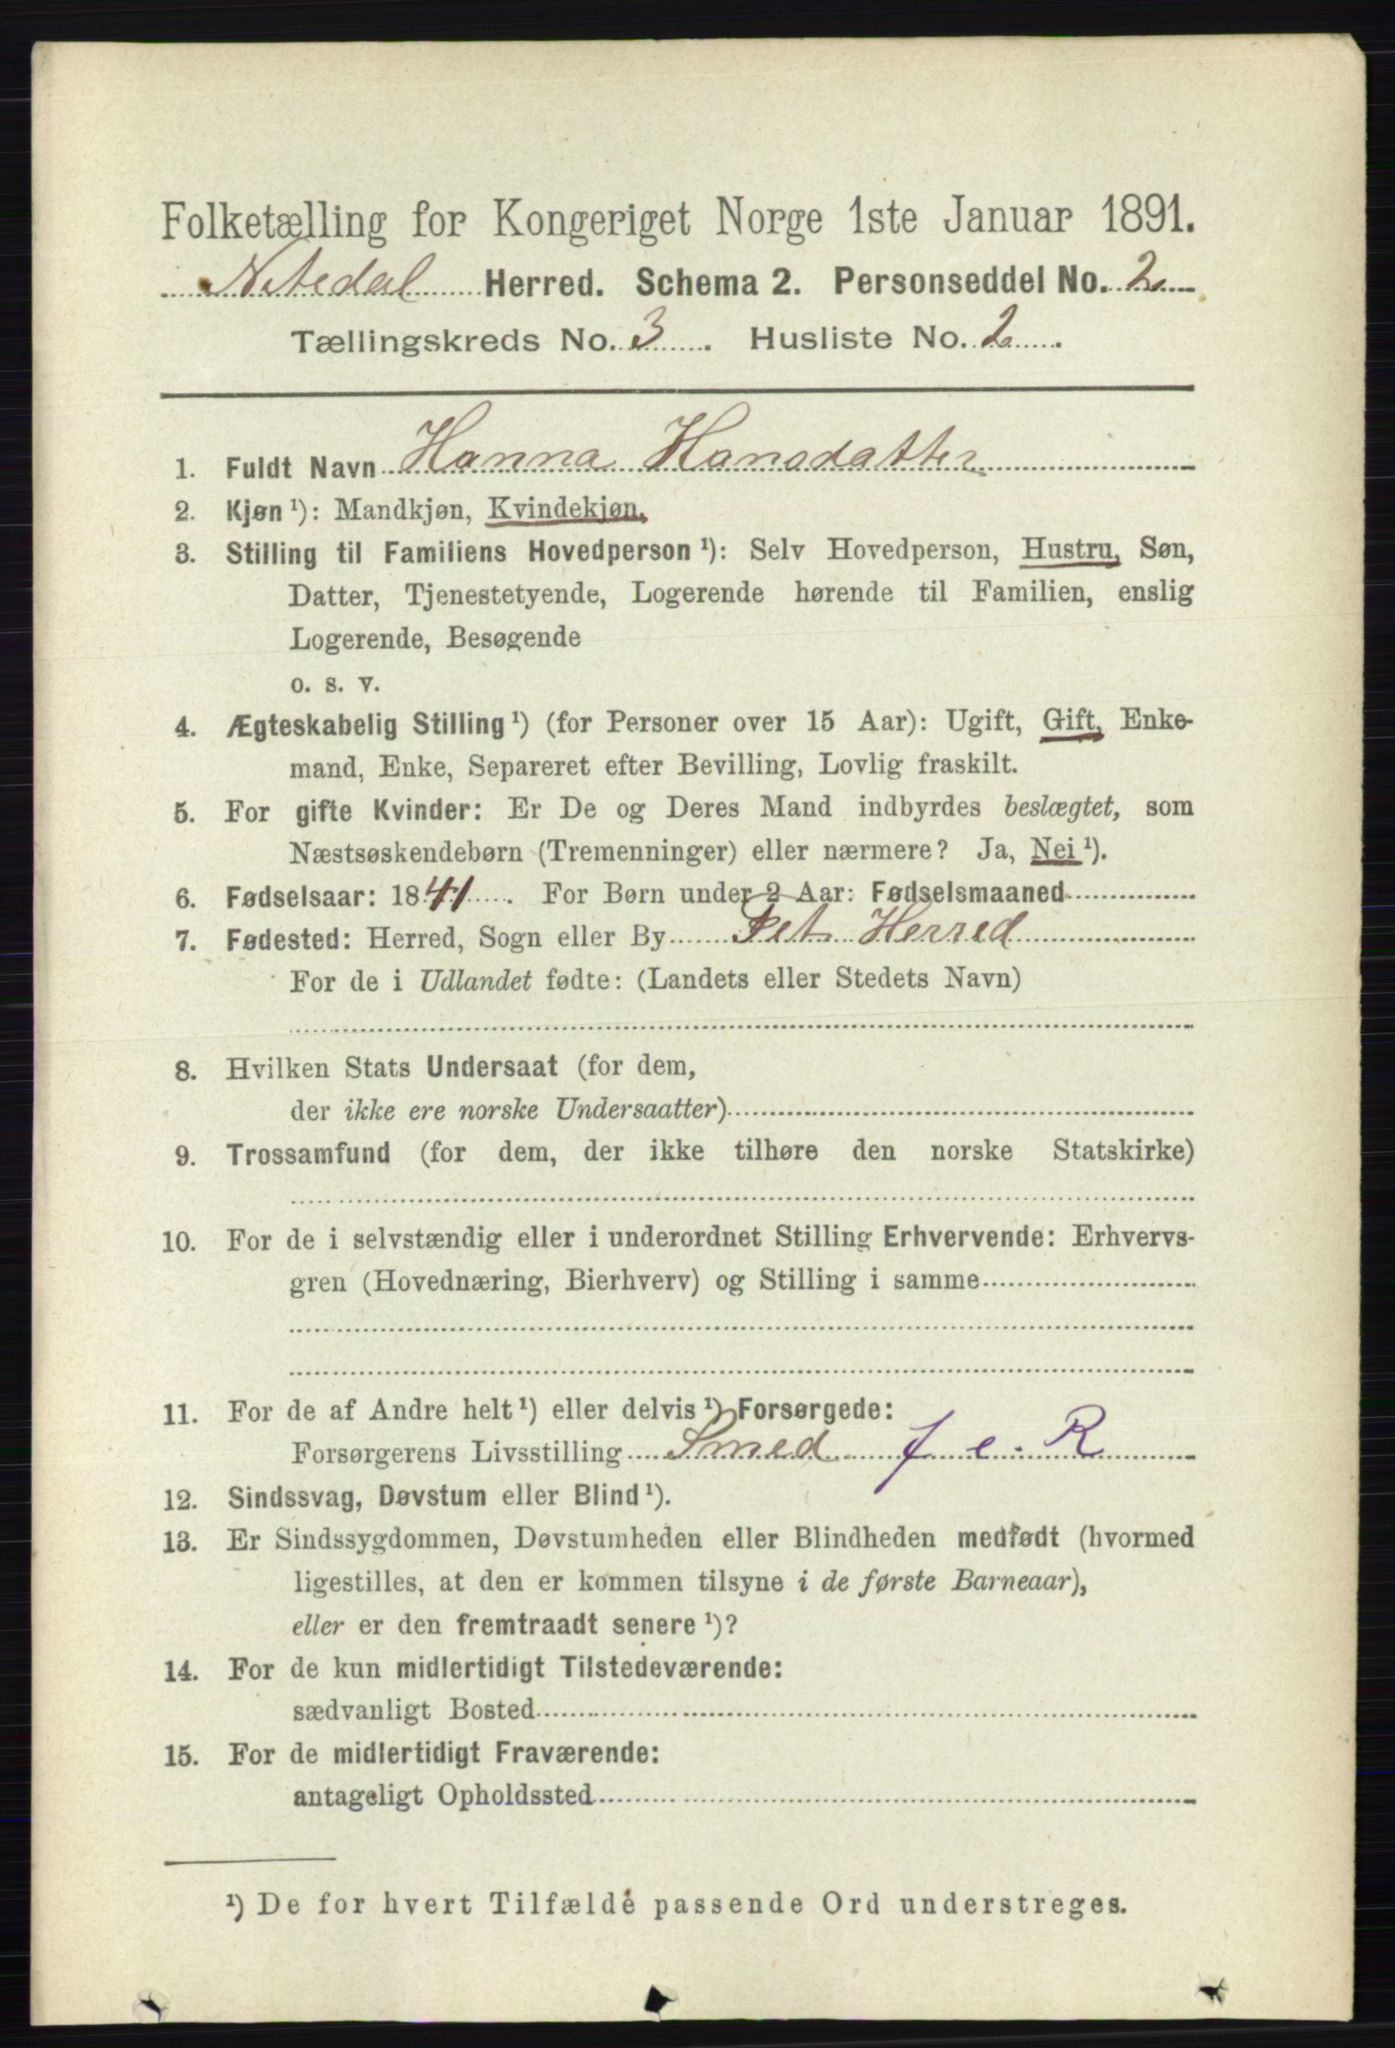 Folketælling for Kongeriget Norge 1ste Januar 1891.
Nitedal Herred. Schema 2. Personseddel No. 2
Tællingskreds No. 3. Husliste No. 2.
1. Fuldt Navn Hanna Hansdatter
2. Kjøn ¹): Mandkjøn, Kvindekjøn.
3. Stilling til Familiens Hovedperson ¹): Selv Hovedperson, Hustru, Søn,
Datter, Tjenestetyende, Logerende hørende til Familien, enslig
Logerende, Besøgende
o. s. v.
4. Ægteskabelig Stilling ¹) (for Personer over 15 Aar): Ugift, Gift, Enke-
mand, Enke, Separeret efter Bevilling, Lovlig fraskilt.
5. For gifte Kvinder: Er De og Deres Mand indbyrdes beslægtet, som
Næstsøskendebørn (Tremenninger) eller nærmere? Ja, Nei ¹).
6. Fødselsaar: 1841. For Børn under 2 Aar: Fødselsmaaned
7. Fødested: Herred, Sogn eller By Fet Herred
For de i Udlandet fødte: (Landets eller Stedets Navn)
8. Hvilken Stats Undersaat (for dem,
der ikke ere norske Undersaatter)
9. Trossamfund (for dem, der ikke tilhøre den norske Statskirke)
10. For de i selvstændig eller i underordnet Stilling Erhvervende: Erhvervs-
gren (Hovednæring, Bierhverv) og Stilling i samme
11. For de af Andre helt ¹) eller delvis ¹) Forsørgede:
Forsørgerens Livsstilling Smed f e. R
12. Sindssvag, Døvstum eller Blind ¹).
13. Er Sindssygdommen, Døvstumheden eller Blindheden medfødt (hvormed
ligestilles, at den er kommen tilsyne i de første Barneaar),
eller er den fremtraadt senere ¹)?
14. For de kun midlertidigt Tilstedeværende:
sædvanligt Bosted
15. For de midlertidigt Fraværende:
antageligt Opholdssted
¹) De for hvert Tilfælde passende Ord understreges.